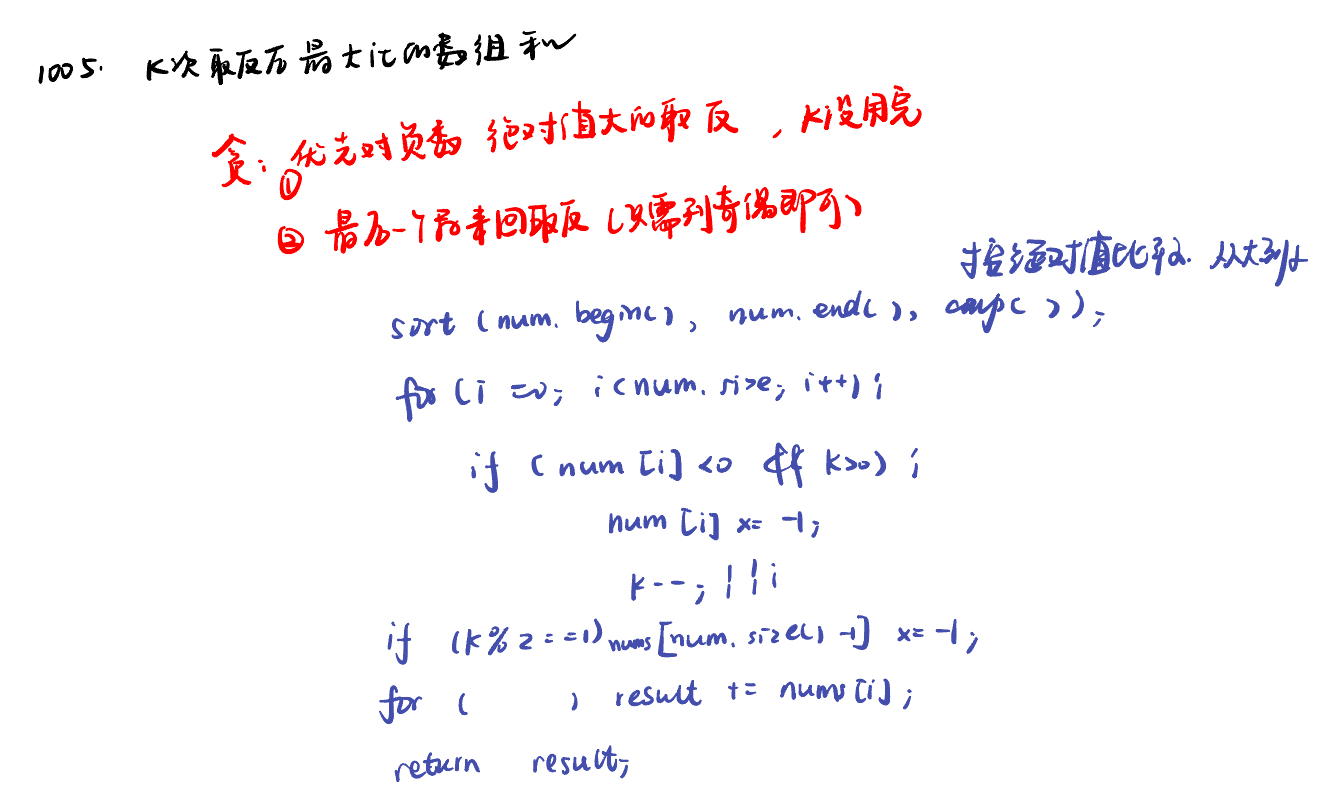 1005. K次取反后最大化的数组和
贪: ① 优先对负数 绝对值大的取反 , K没用完
② 最后一个数来回取反 (只需到奇偶即可)
按绝对值比较. 从大到小
sort (num. begin( ) , num. end( ), cmp( ) );
for (i =0; i<num. size; i++) ;
if ( num [i] <0 && k>0) ;
num [i] x= -1;
k--;
if (k%2==1) nums [num. size() -1] x= -1;
for ( ) result += nums [i] ;
return result;